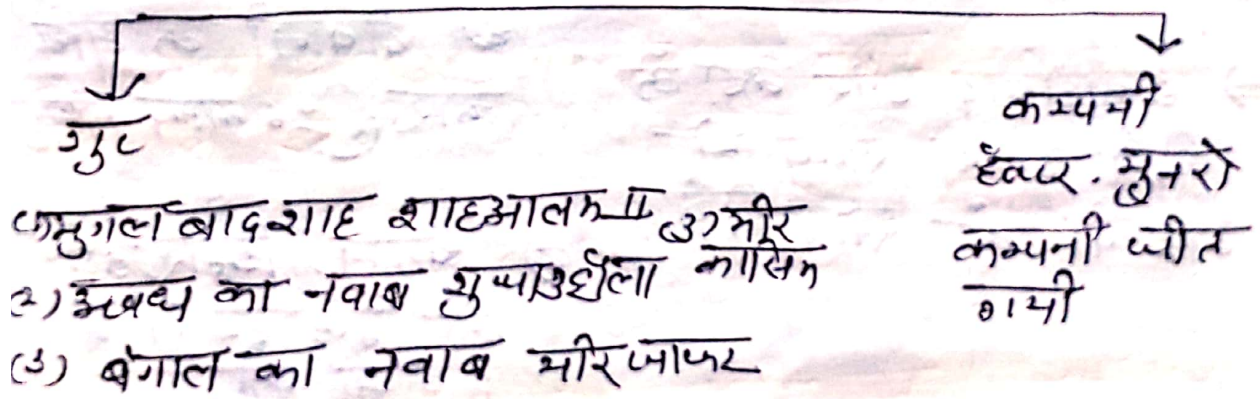 गुट
(1) मुगल बादशाह शाहआलम II (3) मीर कासिम
(2) अवध का नवाब शुजाउद्दौला
(3) बंगाल का नवाब मीरजाफर
कम्पनी
हेक्टर. मुनरो
कम्पनी जीत
गयी